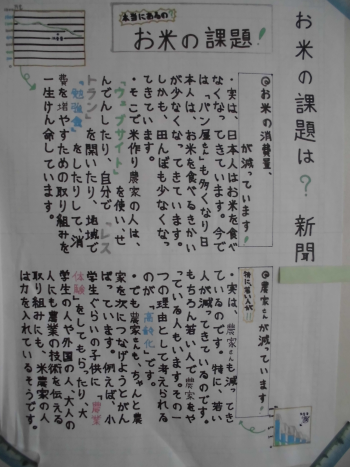 お米の課題は?新聞
本当にあるの
お米の課題!
◎お米の消費量、
が減っています!
・実は、日本人はお米を食べ
なくなってきています。今で
は「パン屋さん」も多くなり日
本人は、お米を食べるきかい
が少なくなってきています。
しかも、田んぼも少なくなっ
てきています。
・そこで米作り農家の人は、
「ウェブサイト」を使い、せ
んでんしたり、自分で「レス
トラン」を開いたり、地域で
「勉強会」をしたりして、消
費を増やすための取り組みを
一生けん命しています。
◎農家さんが減っています!
特に若い人が!!
・実は、農家さんも減ってき
ているのです。特に、若い
人が減ってきているのです。
もちろん若い人で農家をや
っている人もいます。その一
つの理由として考えられる
のが「高齢化」です。
・でも農家さんも、ちゃんと農
家を次につなげようとがん
ばっています。例えば、小
学生ぐらいの子供に「農業
体験」をしてもらったり、大
学生の人や外国の人、大人の
人にも農業の技術を伝える
取り組みにも、米農家の人
は力を入れているそうです。